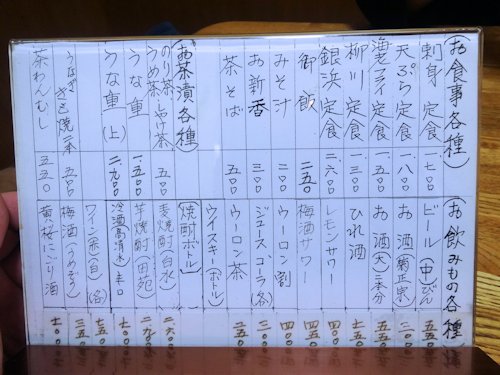 お食事各種
刺身定食 一、七〇〇
天ぷら定食 一、八〇〇
海老フライ定食 一、五〇〇
柳川定食 一、三〇〇
銀浜定食 二、六〇〇
御飯 二五〇
みそ汁 二〇〇
お新香 三〇〇
茶そば 五〇〇
お茶漬各種
のり茶・しゃけ茶
うめ茶
うな重 一、五〇〇
うな重(上) 二、九〇〇
うなぎ
きも焼一本 五〇〇
茶わんむし 五五〇
お飲みもの各種
ビール(中)びん 五五〇
お酒(菊正宗) 三〇〇
お酒(大)二本分 五五〇
ひれ酒
レモンサワー
梅酒サワー 四五〇
ウーロン割 四〇〇
ジュースコーラ(各) 三〇〇
ウーロン茶 二五〇
ウイスキー(ボトル)
焼酎ボトル
麦焼酎(白水) 二、六〇〇
芋焼酎(田苑) 二、九〇〇
冷酒(高清水)辛口 七〇〇
ワイン(赤)(白)
梅酒(うめざけ) 三五〇
黄桜にごり酒 七〇〇